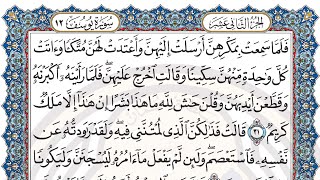 الجزء الثاني عشر
سورة يوسف ١٢
فَلَمَّا سَمِعَتْ بِمَكْرِهِنَّ أَرْسَلَتْ إِلَيْهِنَّ وَأَعْتَدَتْ لَهُنَّ مُتَّكَـًٔا وَءَاتَتْ
كُلَّ وَٰحِدَةٍ مِّنْهُنَّ سِكِّينًا وَقَالَتِ ٱخْرُجْ عَلَيْهِنَّ ۖ فَلَمَّا رَأَيْنَهُۥٓ أَكْبَرْنَهُۥ
وَقَطَّعْنَ أَيْدِيَهُنَّ وَقُلْنَ حَٰشَ لِلَّهِ مَا هَٰذَا بَشَرًا إِنْ هَٰذَآ إِلَّا مَلَكٌ
كَرِيمٌ ٣١ قَالَتْ فَذَٰلِكُنَّ ٱلَّذِى لُمْتُنَّنِى فِيهِ ۖ وَلَقَدْ رَٰوَدتُّهُۥ عَن
نَّفْسِهِۦ فَٱسْتَعْصَمَ ۖ وَلَئِن لَّمْ يَفْعَلْ مَآ ءَامُرُهُۥ لَيُسْجَنَنَّ وَلَيَكُونًا